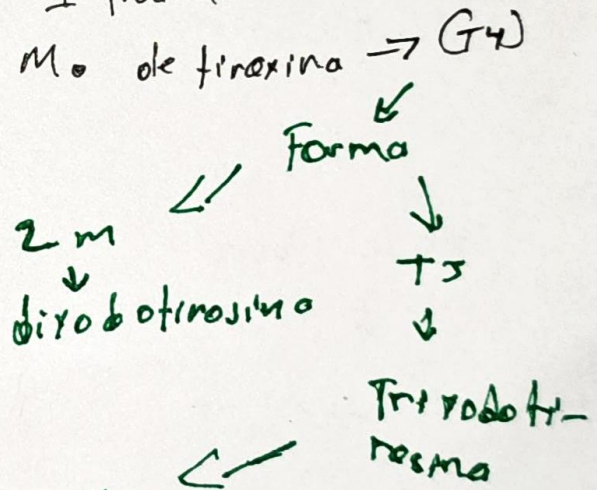 Mo de tiroxina => (T4)
Forma
2 m
T3
diyodotirosina
Triyodoti-
rosina